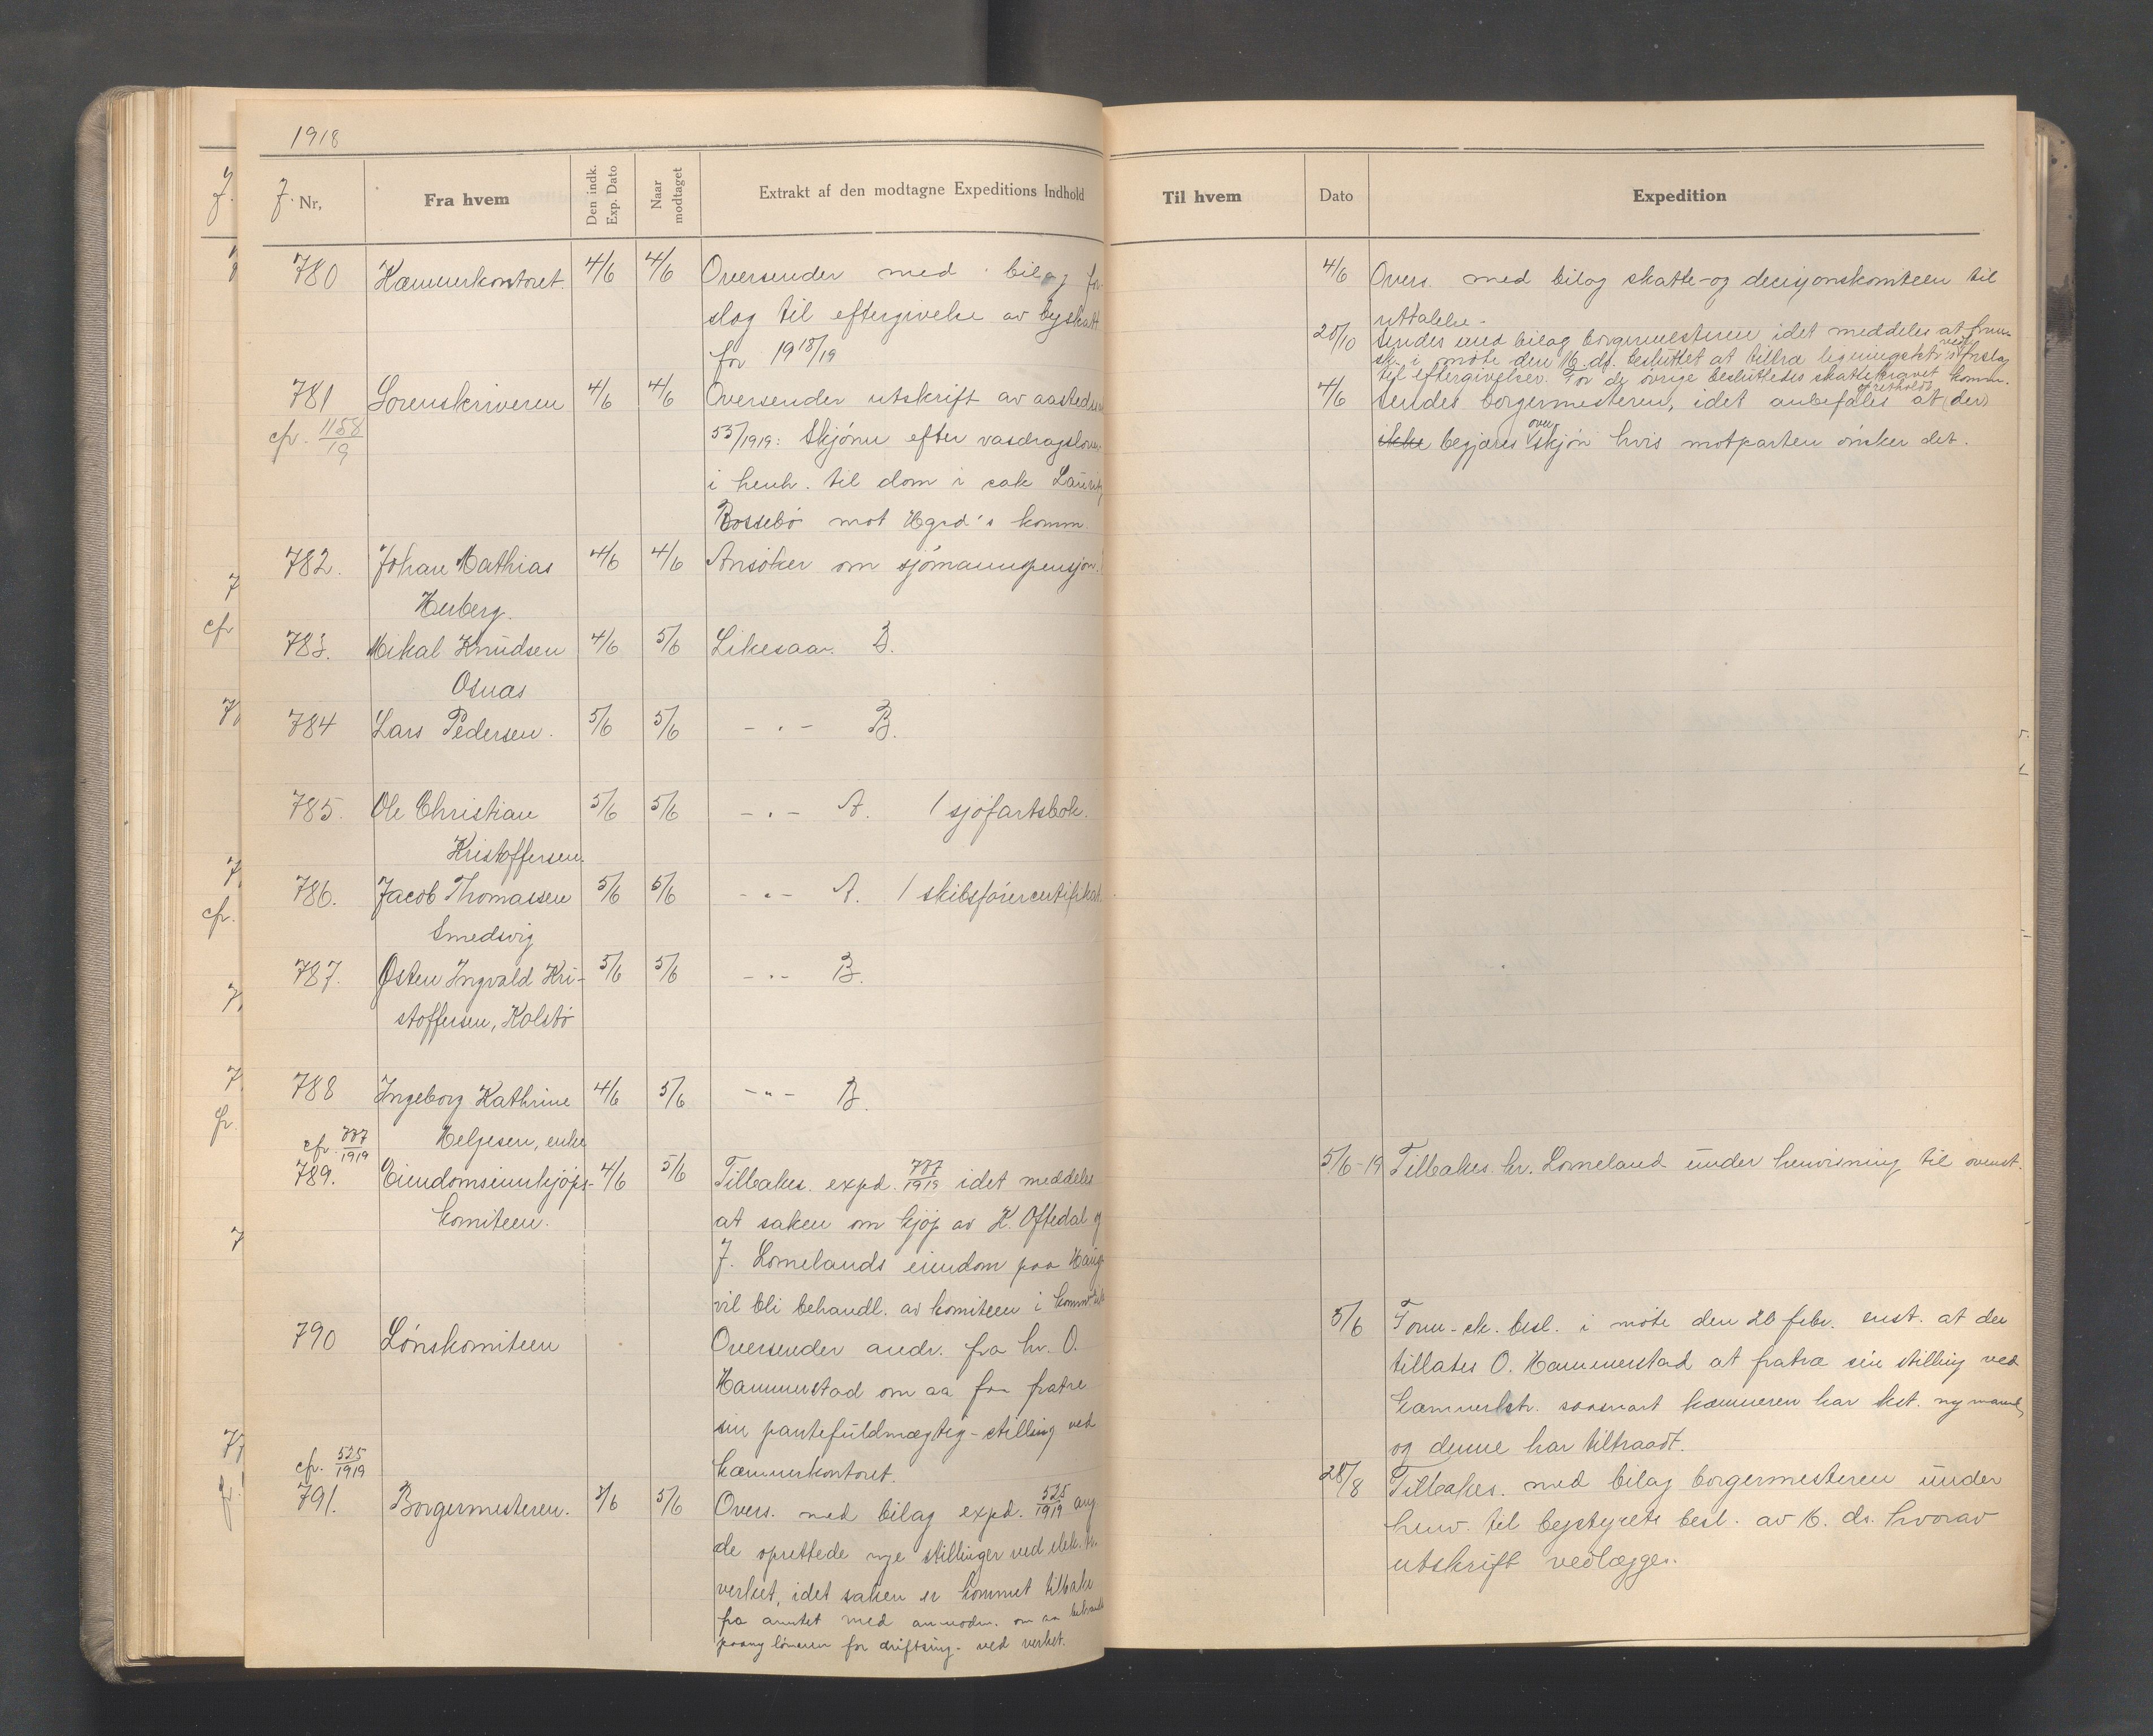 1918
J. Nr,
Fra hvem
Den indk. Exp. Dato
Naar modtaget
Extrakt af den modtagne Expeditions Indhold
780 Kæmnerkontoret. 4/6 4/6 Oversender med bilag for-
slag til eftergivelse av byskatt
for 1918/19
781 Sorenskriveren 4/6 4/6 Oversender utskrift av
cfr. 1158/19
55/1919: Skjønn efter vasdragsloven
i henh. til dom i sak
Rossebø mot Hgsd's komm.
782. Johan Mathias 4/6 4/6 Ansøker om sjømannspensjon.
Herberg.
783. Mikal Knudsen 4/6 5/6 Likesaa. B.
Osnas
784 Lars Pedersen. 5/6 5/6 - " - B.
785. Ole Christian 5/6 5/6 - " - A. 1 sjøfartsbok.
Kristoffersen.
786. Jacob Thomassen 5/6 5/6 - " - A. 1 skibsførercertifikat.
Smedsvig
787. Østen Ingvald Kri- 5/6 5/6 - " - B.
stoffersen, Kolstø
788 Ingeborg Kathrine 4/6 5/6 - " - B.
Helgesen, enke
cfr. 777/1919
789. Eiendomsinnkjøps- 4/6 5/6 Tilbakes. expd. 777/1919 idet meddeles
komiteen. at saken om kjøp av K. Oftedal og
J. Lomelands eiendom paa
vil bli behandl. av komiteen i
790 Lønskomiteen Oversender andr. fra hr. O.
Hammerstad om aa faa fratre
sin pantefuldmægtig-stilling ved
kæmnerkontoret.
cfr. 525/1919
791. Borgermesteren. 5/6 5/6 Overs. med bilag expd. 525/1919 ang
de oprettede nye stillinger ved elek.
verket, idet saken er kommet tilbake
fra amtet med anmodn. om aa
paany lønnen for driftsing. ved verket.
Til hvem
Dato
Expedition
4/6 Overs. med bilag skatte- og decisjonskomiteen til
uttalelse.
20/10 Sendes med bilag borgermesteren idet meddeles at
sk. i møte den 16. ds. besluttet at tiltra forslag
til eftergivelser. For de øvrige besluttedes skattekravet
opretholdt
4/6 Sendes borgermesteren, idet anbefales at der
ikke begjæres over skjøn hvis motparten ønsker det.
5/6-19 Tilbakes. hr. Lomeland under henvisning til ovenst.
5/6 Form.-sk. besl. i møte den 20 febr. enst. at der
tillates O. Hammerstad at fratra sin stilling ved
kæmnerktr. saasnart kæmneren har
og denne har tiltraadt.
28/8 Tilbakes. med bilag borgermesteren under
henv. til bystyrets besl. av 16. ds. hvorav
utskrift vedlægges.